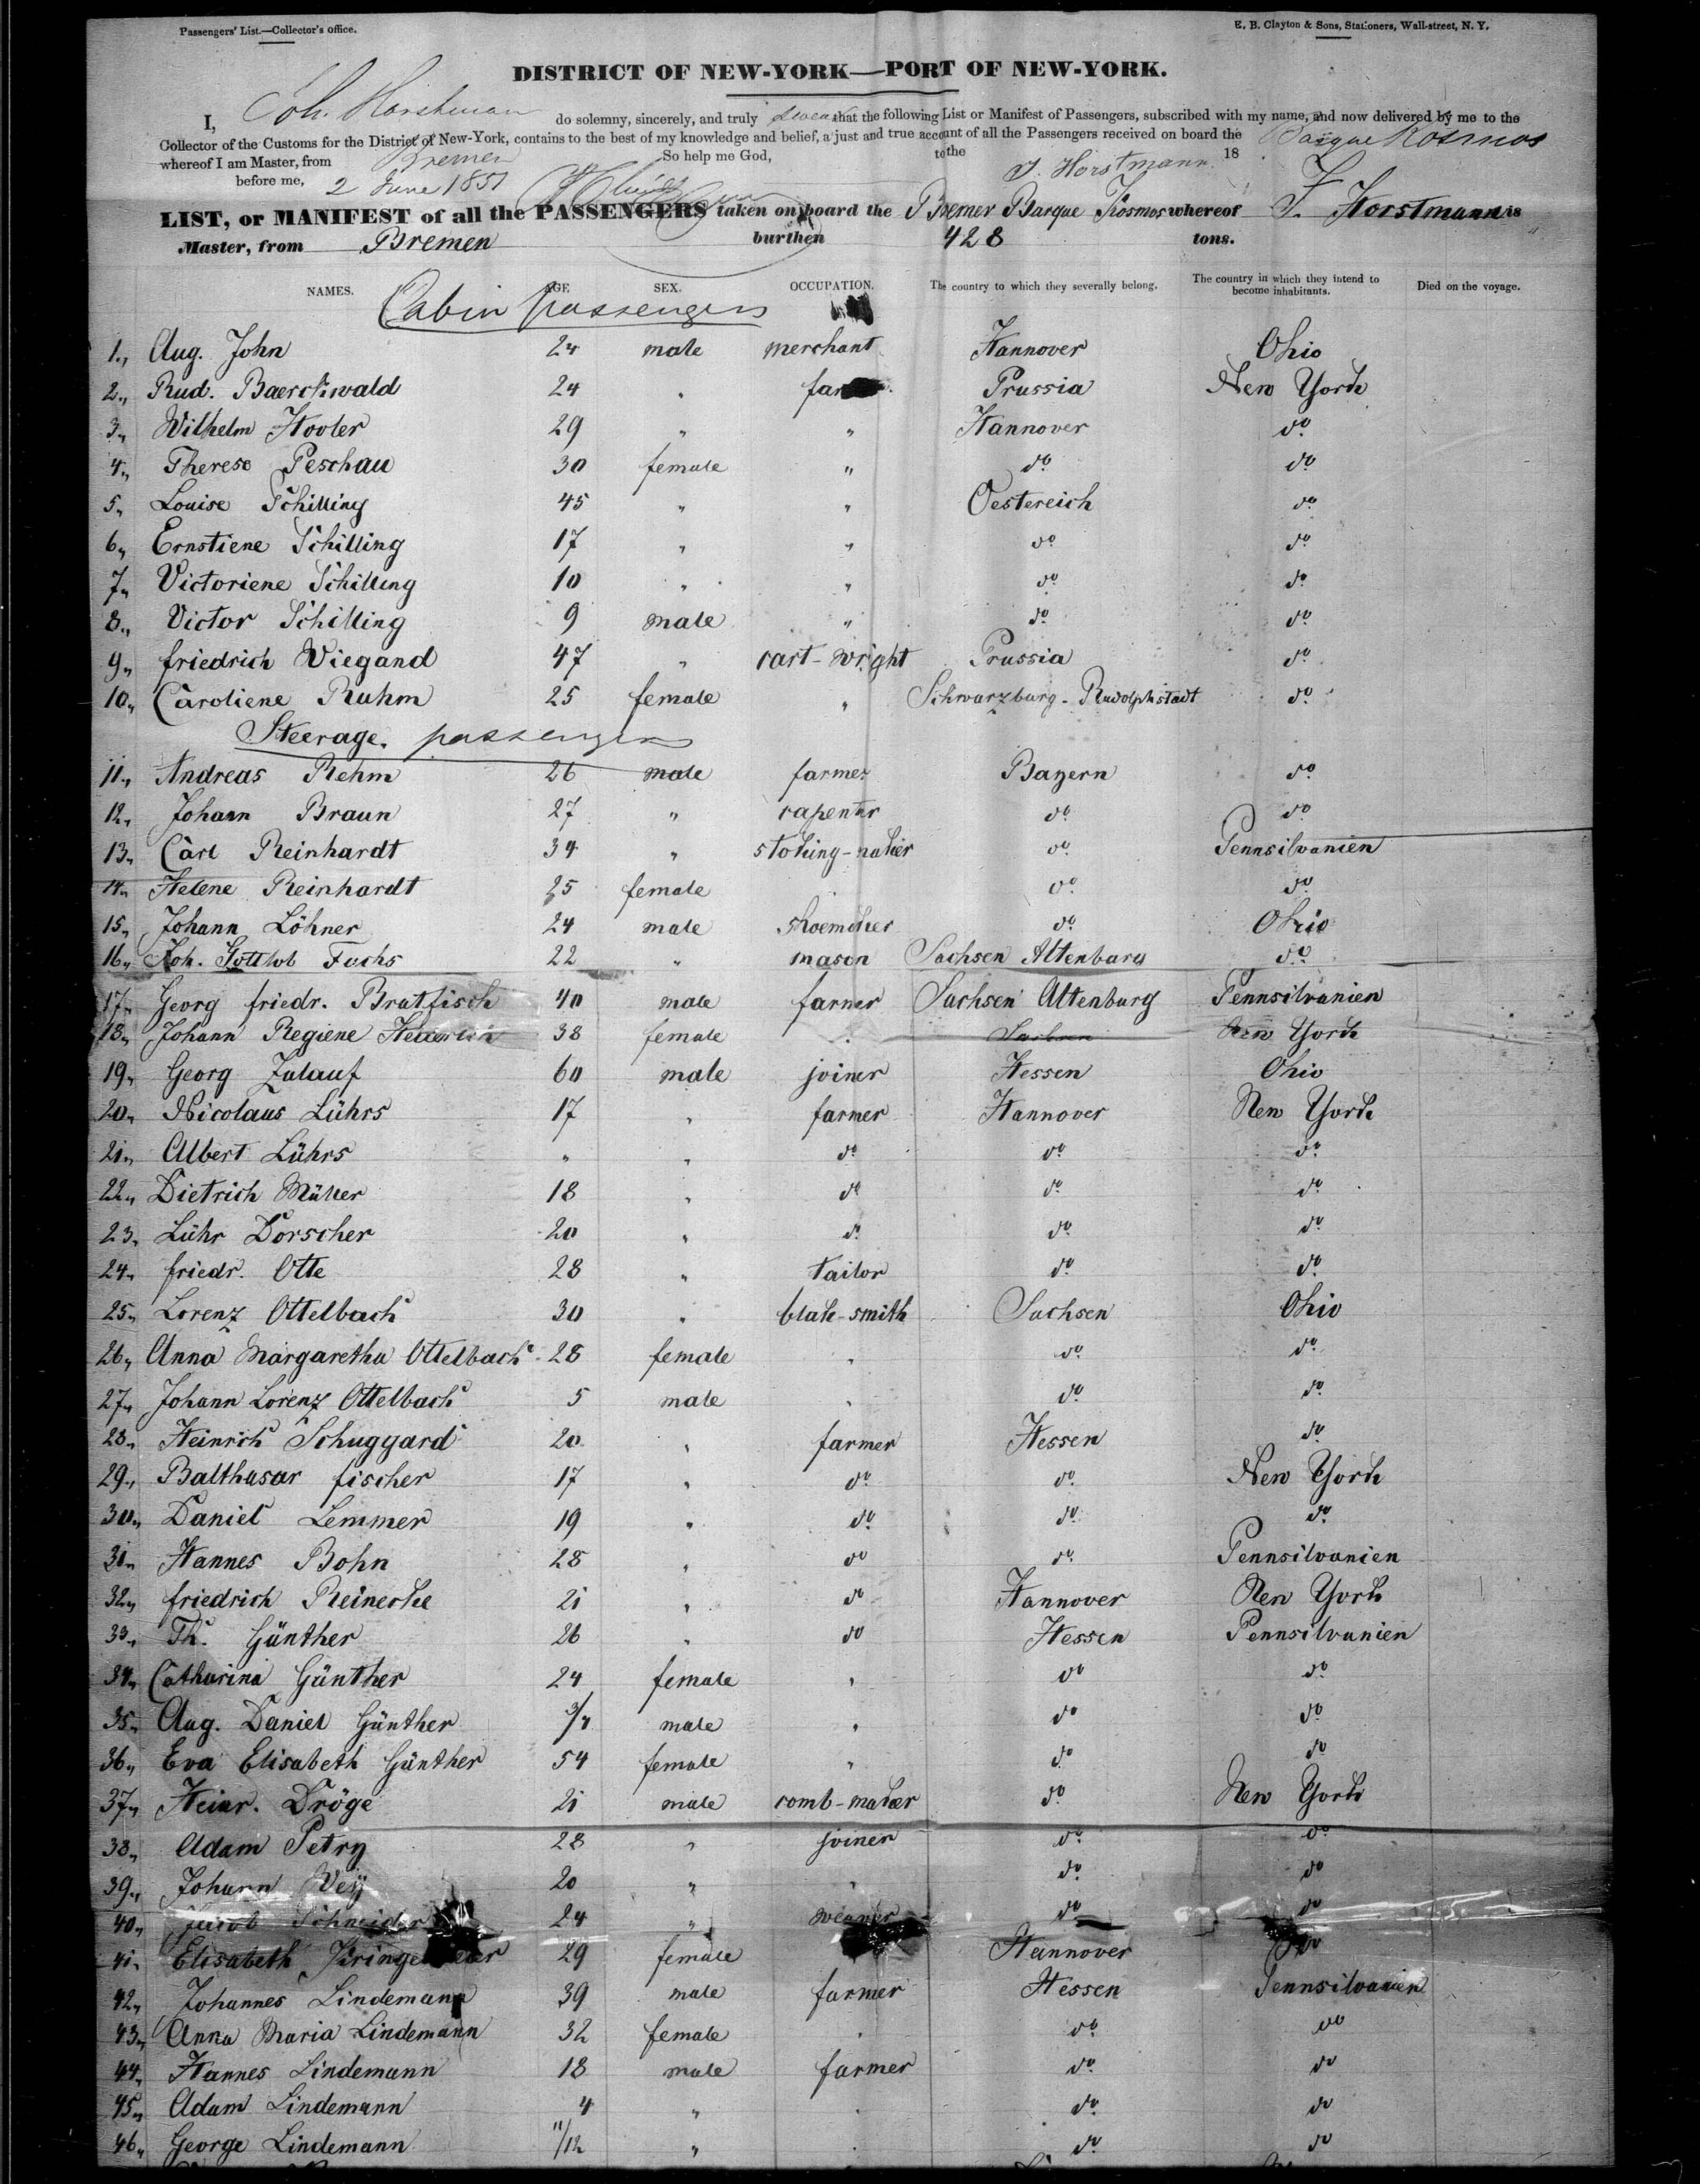 Passengers' List.—Collector's office.
E. B. Clayton & Sons, Stationers, Wall-street, N. Y.
DISTRICT OF NEW-YORK—PORT OF NEW-YORK.
I, Joh. Horstmann do solemny, sincerely, and truly swear that the following List or Manifest of Passengers, subscribed with my name, and now delivered by me to the
Collector of the Customs for the District of New-York, contains to the best of my knowledge and belief, a just and true account of all the Passengers received on board the Barque Kosmos
whereof I am Master, from Bremen So help me God, to the 18
J. Horstmann
before me, 2 June 1851
LIST, or MANIFEST of all the PASSENGERS taken on board the Bremer Barque Kosmos whereof J. Horstmann is
Master, from Bremen burthen 428 tons.
NAMES. AGE SEX. OCCUPATION. The country to which they severally belong. The country in which they intend to become inhabitants. Died on the voyage.
Cabin passengers
1., Aug. John 24 male merchant Hannover Ohio
2., Rud. Baerckwald 24 " Prussia New York
3., Wilhelm Hovler 29 " " Hannover do
4., Therese Peschau 30 female " do do
5., Louise Schilling 45 " " Oestereich do
6., Ernstiene Schilling 17 " " do do
7., Victoriene Schilling 10 " " do do
8., Victor Schilling 9 male " do do
9., friedrich Wiegand 47 " cart-wright Prussia do
10., Caroliene Ruhm 25 female " Schwarzburg-Rudolphstadt do
Steerage. passengers
11., Andreas Rehm 26 male farmer Bayern do
12., Johann Braun 27 " capenter do do
13., Carl Reinhardt 34 " stoking-maker do Pennsilvanien
14., Helene Reinhardt 25 female do do
15., Johann Löhner 24 male shoemaker do Ohio
16., Joh. Gottlob Fuchs 22 " mason Sachsen Altenburg do
17., Georg friedr. Bratfisch 40 male farmer Sachsen Altenburg Pennsilvanien
18., Johann Regiene 38 female " New York
19., Georg Zulauf 60 male joiner Hessen Ohio
20., Nicolaus Lührs 17 " farmer Hannover New York
21., Albert Lührs " " do do do
22., Dietrich Müller 18 " do do do
23., Lühr Dorscher 20 " do do do
24., friedr. Otte 28 " tailor do do
25., Lorenz Ottelbach 30 " blak-smith Sachsen Ohio
26., Anna Margaretha Ottelbach 28 female " do do
27., Johann Lorenz Ottelbach 5 male " do do
28., Heinrich Schuggard 20 " farmer Hessen do
29., Balthasar fischer 17 " do do New York
30., Daniel Lemmer 19 " do do do
31., Hannes Bohn 28 " do do Pennsilvanien
32., friedrich Reinecke 21 " do Hannover New York
33., Th. Günther 26 " do Hessen Pennsilvanien
34., Catharina Günther 24 female " do do
35., Aug. Daniel Günther 3/4 male " do do
36., Eva Elisabeth Günther 54 female " do do
37., Heinr. Dröge 21 male comb-maker do New York
38., Adam Petry 28 " joiner do do
39., Johann Wey 20 " " do do
40., Jacob Schneider 24 " weaver do do
41., Elisabeth 29 female Hannover do
42., Johannes Lindemann 39 male farmer Hessen Pennsilvanien
43., Anna Maria Lindemann 32 female " do do
44., Hannes Lindemann 18 male farmer do do
45., Adam Lindemann 4 " " do do
46., George Lindemann 11/12 " " do do